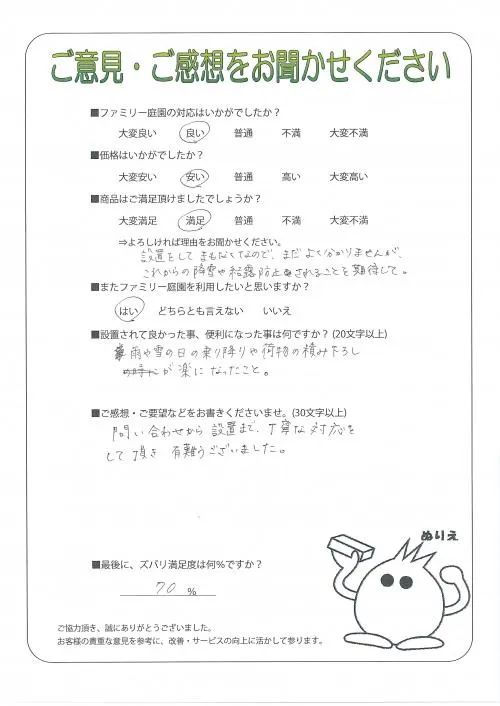 ご意見・ご感想をお聞かせください
■ファミリー庭園の対応はいかがでしたか？
大変良い 良い 普通 不満 大変不満
■価格はいかがでしたか？
大変安い 安い 普通 高い 大変高い
■商品はご満足頂けましたでしょうか？
大変満足 満足 普通 不満 大変不満
⇒よろしければ理由をお聞かせください。
設置をして まもなくなので、まだ よく分かりませんが、
これからの降雪や結露防止されることを期待して。
■またファミリー庭園を利用したいと思いますか？
はい どちらとも言えない いいえ
■設置されて良かった事、便利になった事は何ですか？(20文字以上)
雨や雪の日の乗り降りや荷物の積み下ろし
が楽になったこと。
■ご感想・ご要望などをお書きくださいませ。(30文字以上)
問い合わせから設置まで、丁寧な対応を
して頂き 有難うございました。
ぬりえ
■最後に、ズバリ満足度は何％ですか？
70 ％
ご協力頂き、誠にありがとうございました。
お客様の貴重な意見を参考に、改善・サービスの向上に活かして参ります。